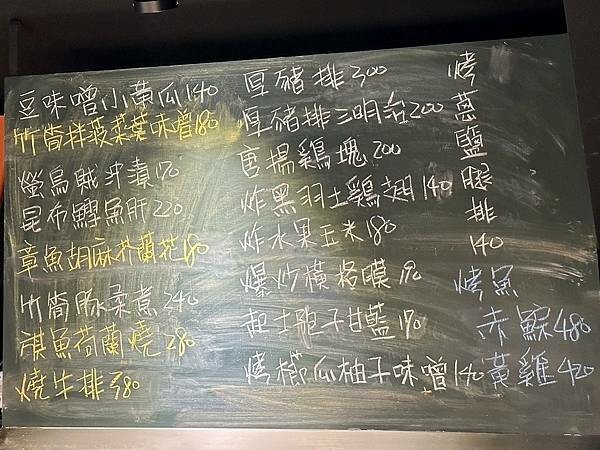 豆味噌小黃瓜140
竹筍拌菠菜葉味噌180
螢烏賊沖漬170
昆布鱈魚肝220
章魚胡麻芥蘭花180
竹筍豚柔煮240
旗魚荷蘭燒280
燒牛排380
厚豬排300
厚豬排三明治200
唐揚雞塊200
炸黑羽土雞翅140
炸水果玉米180
爆炒橫格膜190
起士孢子甘藍170
烤櫛瓜柚子味噌140
烤蔥鹽腿排140
烤魚
赤鯮480
黃雞420